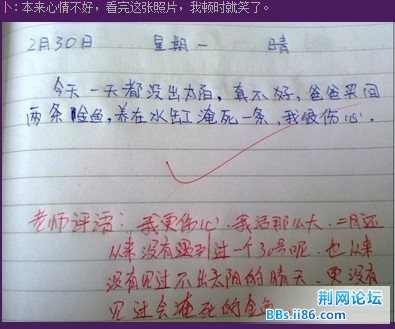 卜: 本来心情不好，看完这张照片，我顿时就笑了。
2月30日 星期一 晴
今天一天都没出太阳，真不好，爸爸买回
两条金鱼，养在水缸淹死一条，我很伤心。
老师评语：我更伤心，我活那么大，二月还
从来没有遇到过一个30号呢，也从来
没有见过不出太阳的晴天，更没有
见过会淹死的金鱼
荆网论坛
BBs.ii86.com